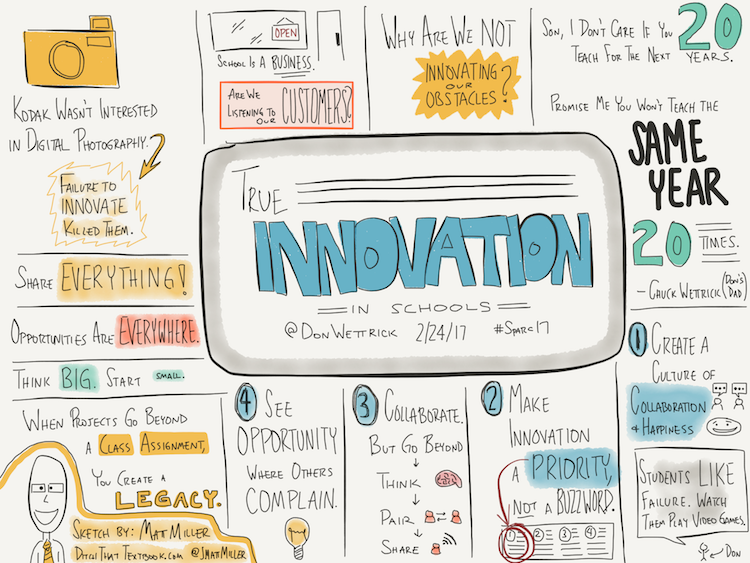 KODAK WASN'T INTERESTED
IN DIGITAL PHOTOGRAPHY.
FAILURE TO
INNOVATE
KILLED THEM.
OPEN
SCHOOL IS A BUSINESS.
ARE WE
LISTENING TO
OUR
CUSTOMERS?
WHY ARE WE NOT
INNOVATING
OUR
OBSTACLES?
SON, I DON'T CARE IF YOU
TEACH FOR THE NEXT
20
YEARS.
PROMISE ME YOU WON'T TEACH THE
SAME
YEAR
20 TIMES.
- CHUCK WETTRICK (DON'S DAD)
TRUE
INNOVATION
IN SCHOOLS
@DONWETTRICK 2/24/17 #SPARC17
SHARE EVERYTHING!
OPPORTUNITIES ARE EVERYWHERE.
THINK BIG. START SMALL.
WHEN PROJECTS GO BEYOND
A CLASS ASSIGNMENT,
YOU CREATE A
LEGACY.
SKETCH BY: MATT MILLER
DITCHTHATTEXTBOOK.COM @JMATTMILLER
4 SEE
OPPORTUNITY
WHERE OTHERS
COMPLAIN.
3 COLLABORATE.
BUT GO BEYOND
THINK
PAIR
SHARE
2 MAKE
INNOVATION
A PRIORITY,
NOT A BUZZWORD.
1 2 3 4
1 CREATE A
CULTURE OF
COLLABORATION
+ HAPPINESS
STUDENTS LIKE
FAILURE. WATCH
THEM PLAY VIDEO GAMES.
DON